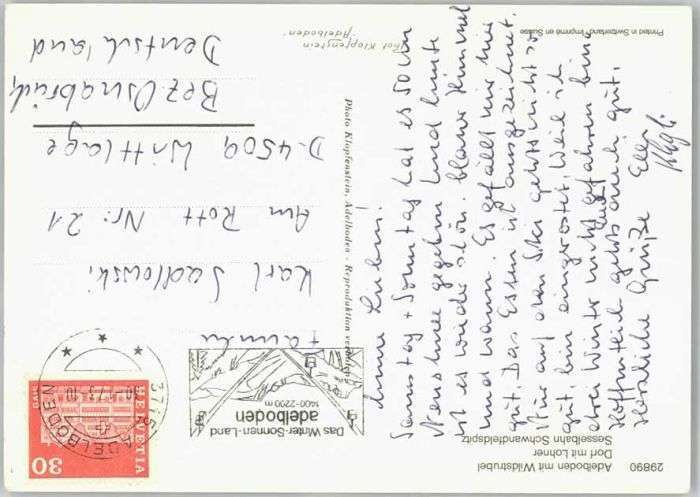 29890
Adelboden mit Wildstrubel
Dorf mit Lohner
Sesselbahn Schwandfeldspitz
Das Winter-Sonnen-Land
adelboden
1400-2200 m
3715 ADELBODEN
HELVETIA
30
Meine Lieben!
Samstag + Sonntag hat es 50 cm
Neuschnee gegeben und heute
ist es wieder schön. blauer Himmel
und warm. Es gefällt mir hier
gut. Das Essen ist ausgezeichnet.
Nur auf den Ski gehts nicht so
gut, bin eingerostet, weil ich
den Winter nicht gefahren bin.
Hoffentlich gehts auch gut.
Herzliche Grüße
Familie
Karl Sadlowski
Am Rott Nr. 21
D-4509 Wittlage
Bez. Osnabrück
Deutschland
Photo Klopfenstein, Adelboden - Reproduktion verboten
Phot Klopfenstein
Adelboden
Printed in Switzerland - Imprimé en Suisse